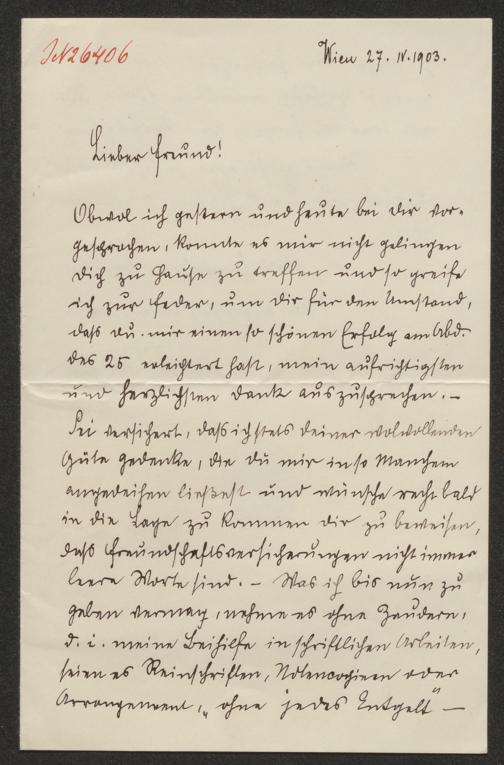 JN 26406
Wien 27. IV. 1903.
Lieber Freund!
Obwol ich gestern und heute bei dir vor-
gesprochen, konnte es mir nicht gelingen
dich zu Hause zu treffen und so greife
ich zur Feder, um dir für den Umstand,
daß du mir einen so schönen Erfolg am Abd.
des 25 erleichtert hast, mein aufrichtigsten
und herzlichsten Dank auszusprechen. –
Sei versichert, daß ich stets deiner wolwollenden
Güte gedenke, die du mir in so Manchem
angedeihen ließest und wünsche recht bald
in die Lage zu kommen dir zu beweisen,
daß Freundschaftsversicherungen nicht immer
leere Worte sind. – Was ich bis nun zu
geben vermag, nehme es ohne Zaudern,
d. i. meine Beihilfe in schriftlichen Arbeiten,
seien es Reinschriften, Notencopieen oder
Arrangement, „ohne jedes Entgelt" –